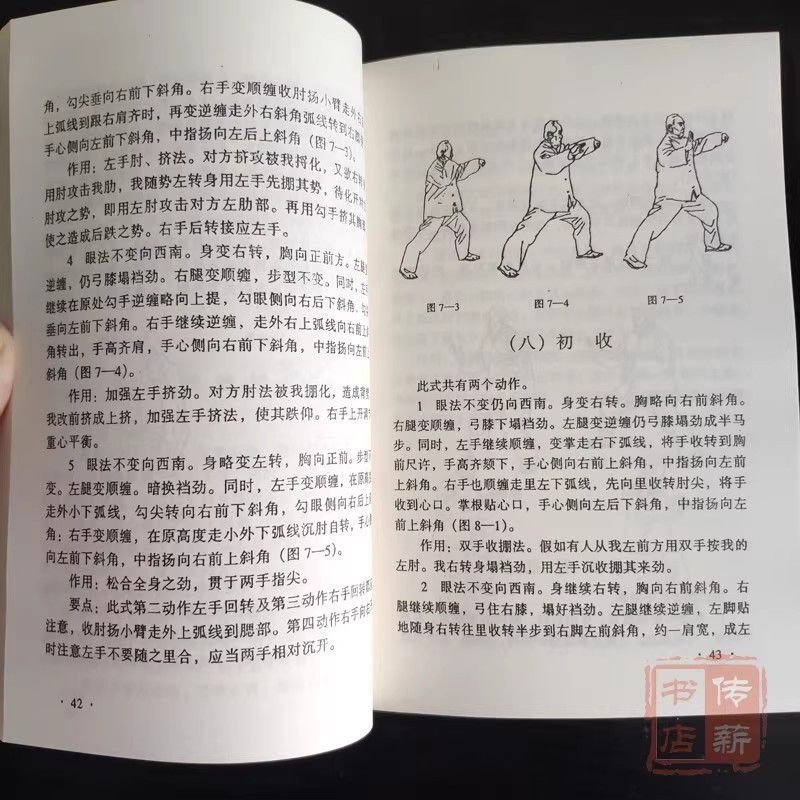 角，勾尖垂向右前下斜角。右手变顺缠收肘扬小臂走外右
上弧线到跟右肩齐时，再变逆缠走外右斜角弧线转到右
手心侧向左前下斜角，中指扬向左后上斜角（图7—3）。
作用：左手肘、挤法。对方挤攻被我捋化，又欲右转
用肘攻击我肋，我随势左转身用左手先掤其势，待化开对
肘攻之势，即用左肘攻击对方左肋部。再用勾手挤其
使之造成后跌之势。右手后转接应左手。
4 眼法不变向西南。身变右转，胸向正前方。左腿
逆缠，仍弓膝塌裆劲。右腿变顺缠，步型不变。同时，左
继续在原处勾手逆缠略向上提，勾眼侧向右后下斜角，勾
垂向左前下斜角。右手继续逆缠，走外右上弧线向右前上
角转出，手高齐肩，手心侧向右前下斜角，中指扬向左前上
斜角（图7—4）。
作用：加强左手挤劲。对方肘法被我掤化，造成背
我改前挤成上挤，加强左手挤法，使其跌仰。右手上开调
重心平衡。
5 眼法不变向西南。身略变左转，胸向正前。步型
变。左腿变顺缠。暗换裆劲。同时，左手变顺缠，在原高
走外小下弧线，勾尖转向右前下斜角，勾眼侧向左后下斜
角；右手变顺缠，在原高度走小外下弧线沉肘自转，手心
向左前下斜角，中指扬向右前上斜角（图7—5）。
作用：松合全身之劲，贯于两手指尖。
要点：此式第二动作左手回转及第三动作右手回转都
注意，收肘扬小臂走外上弧线到腮部。第四动作右手向右
时注意左手不要随之里合，应当两手相对沉开。
· 42 ·
图7—3
图7—4
图7—5
（八）初 收
此式共有两个动作。
1 眼法不变仍向西南。身变右转。胸略向右前斜角。
右腿变顺缠，弓膝下塌裆劲。左腿变逆缠仍弓膝塌劲成半马
步。同时，左手继续顺缠，变掌走右下弧线，将手收转到胸
前尺许，手高齐颏下，手心侧向右前上斜角，中指扬向左前
上斜角。右手也顺缠走里左下弧线，先向里收转肘尖，将手
收到心口。掌根贴心口，手心侧向左后下斜角，中指扬向左
前上斜角（图8—1）。
作用：双手收掤法。假如有人从我左前方用双手按我的
左肘。我右转身塌裆劲，用左手沉收掤其来劲。
2 眼法不变向西南。身继续右转，胸向右前斜角。右
腿继续顺缠，弓住右膝，塌好裆劲。左腿继续逆缠，左脚贴
地随身右转往里收转半步到右脚左前斜角，约一肩宽，成左
· 43 ·
传薪
书店